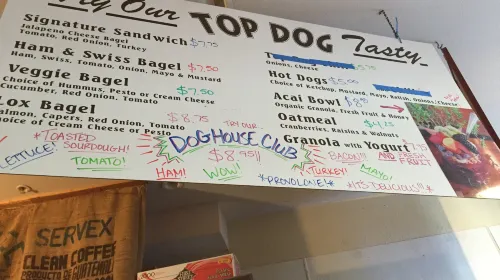 Try Our TOP DOG Tasty
Signature Sandwich $7.75
Jalapeno Cheese Bagel
Tomato, Red Onion, Turkey
Ham & Swiss Bagel $7.50
Ham, Swiss, Tomato, Onion, Mayo & Mustard
Veggie Bagel $7.50
Choice of Hummus, Pesto or Cream Cheese
Cucumber, Red Onion, Tomato
Lox Bagel $8.75
Salmon, Capers, Red Onion, Tomato
Choice of Cream Cheese or Pesto
Onions, Cheese
Hot Dogs $5.00
Choice of Ketchup, Mustard, Mayo, Relish, Onions, Cheese
Acai Bowl $8.50
Organic Granola, Fresh Fruit & Honey
Oatmeal $4.25
Cranberries, Raisins & Walnuts
Granola with Yogurt $7.95
AND FRESH FRUIT
TRY OUR
DOGHOUSE CLUB
$8.95!!
*TOASTED SOURDOUGH!
LETTUCE!
TOMATO!
HAM!
WOW!
TURKEY!
BACON!!!
MAYO!
*PROVOLONE!*
*IT'S DELICIOUS!!!*
SERVEX
CLEAN COFFEE
PRODUCTO DE GUATEMALA